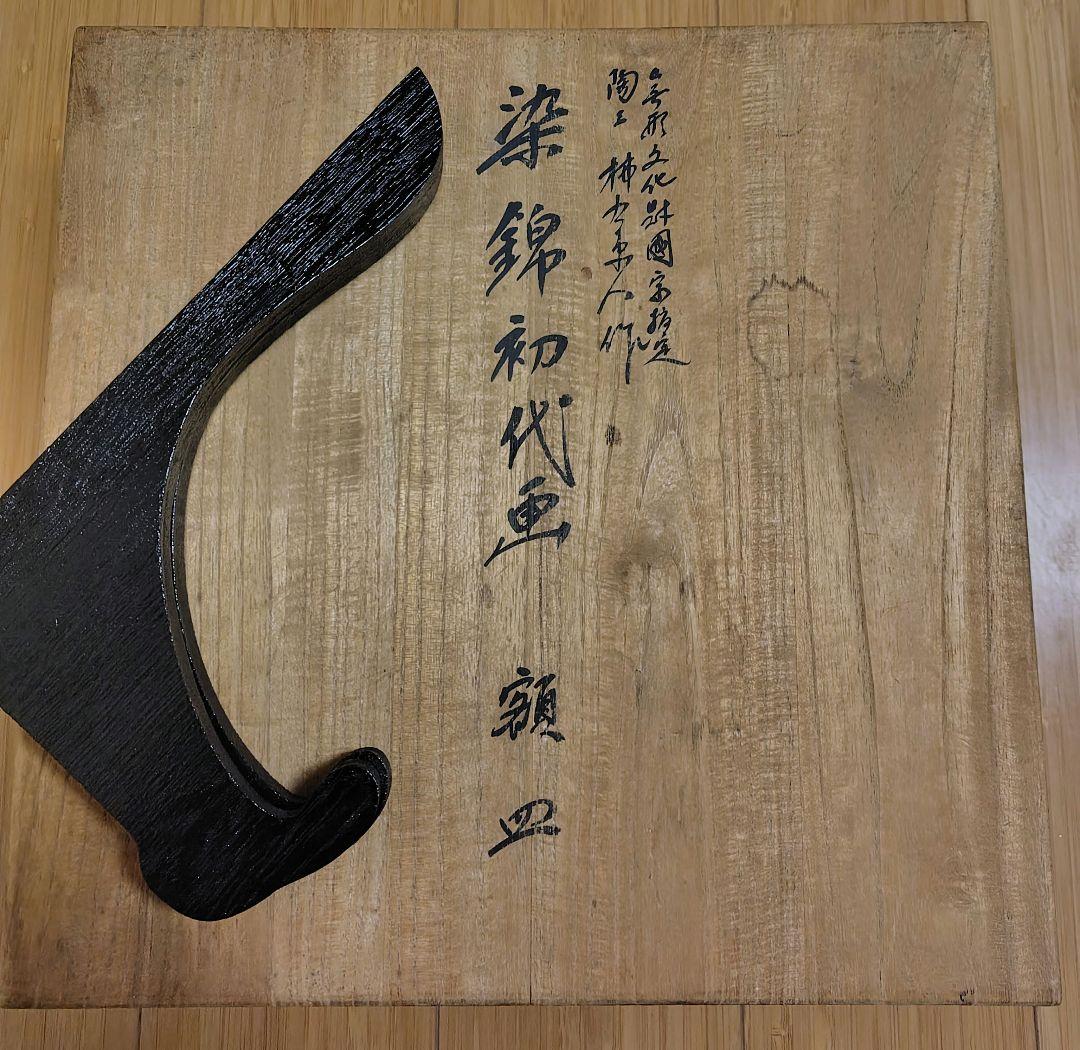 無形文化財國家指定
陶工 柿右衛門作
染錦初代画 額皿